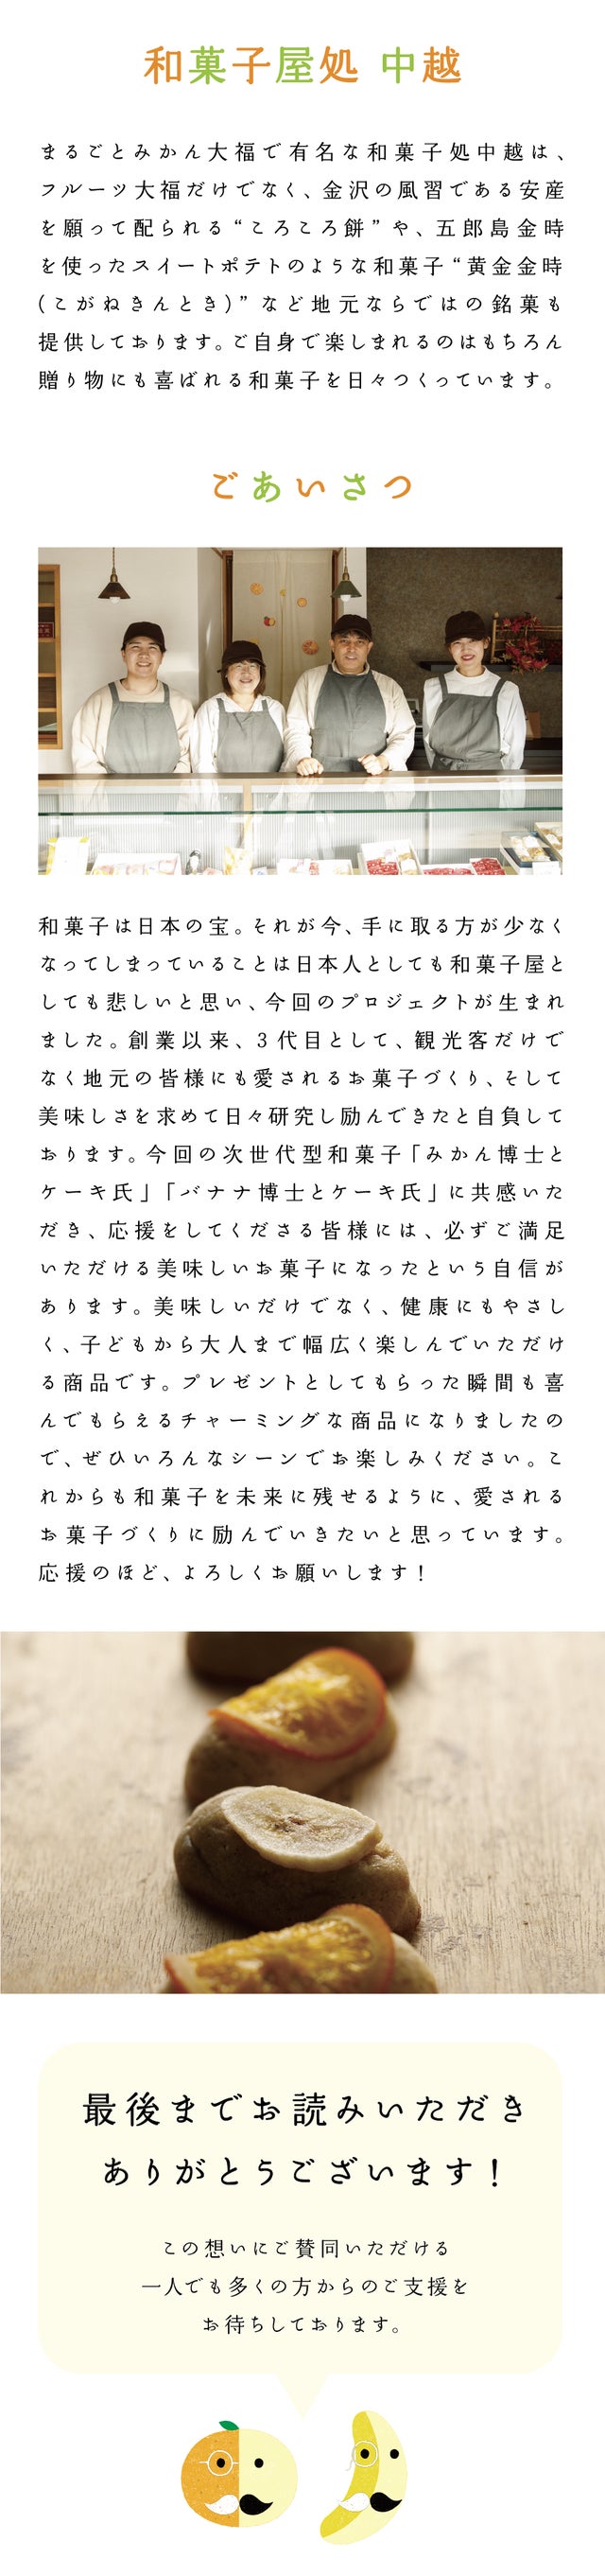 和菓子屋処 中越
まるごとみかん大福で有名な和菓子処中越は、
フルーツ大福だけでなく、金沢の風習である安産
を願って配られる“ころころ餅”や、五郎島金時
を使ったスイートポテトのような和菓子“黄金金時
(こがねきんとき)”など地元ならではの銘菓も
提供しております。ご自身で楽しまれるのはもちろん
贈り物にも喜ばれる和菓子を日々つくっています。
ごあいさつ
和菓子は日本の宝。それが今、手に取る方が少なく
なってしまっていることは日本人としても和菓子屋と
しても悲しいと思い、今回のプロジェクトが生まれ
ました。創業以来、3代目として、観光客だけで
なく地元の皆様にも愛されるお菓子づくり、そして
美味しさを求めて日々研究し励んできたと自負して
おります。今回の次世代型和菓子「みかん博士と
ケーキ氏」「バナナ博士とケーキ氏」に共感いた
だき、応援をしてくださる皆様には、必ずご満足
いただける美味しいお菓子になったという自信が
あります。美味しいだけでなく、健康にもやさし
く、子どもから大人まで幅広く楽しんでいただけ
る商品です。プレゼントとしてもらった瞬間も喜
んでもらえるチャーミングな商品になりましたの
で、ぜひいろんなシーンでお楽しみください。こ
れからも和菓子を未来に残せるように、愛される
お菓子づくりに励んでいきたいと思っています。
応援のほど、よろしくお願いします！
最後までお読みいただき
ありがとうございます！
この想いにご賛同いただける
一人でも多くの方からのご支援を
お待ちしております。